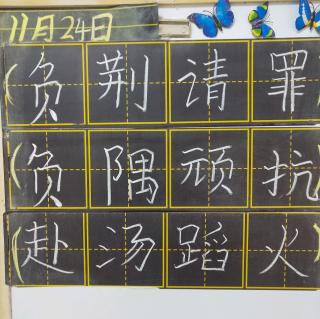 11月24日
(负荆请罪)
(负隅顽抗
(赴汤蹈火)